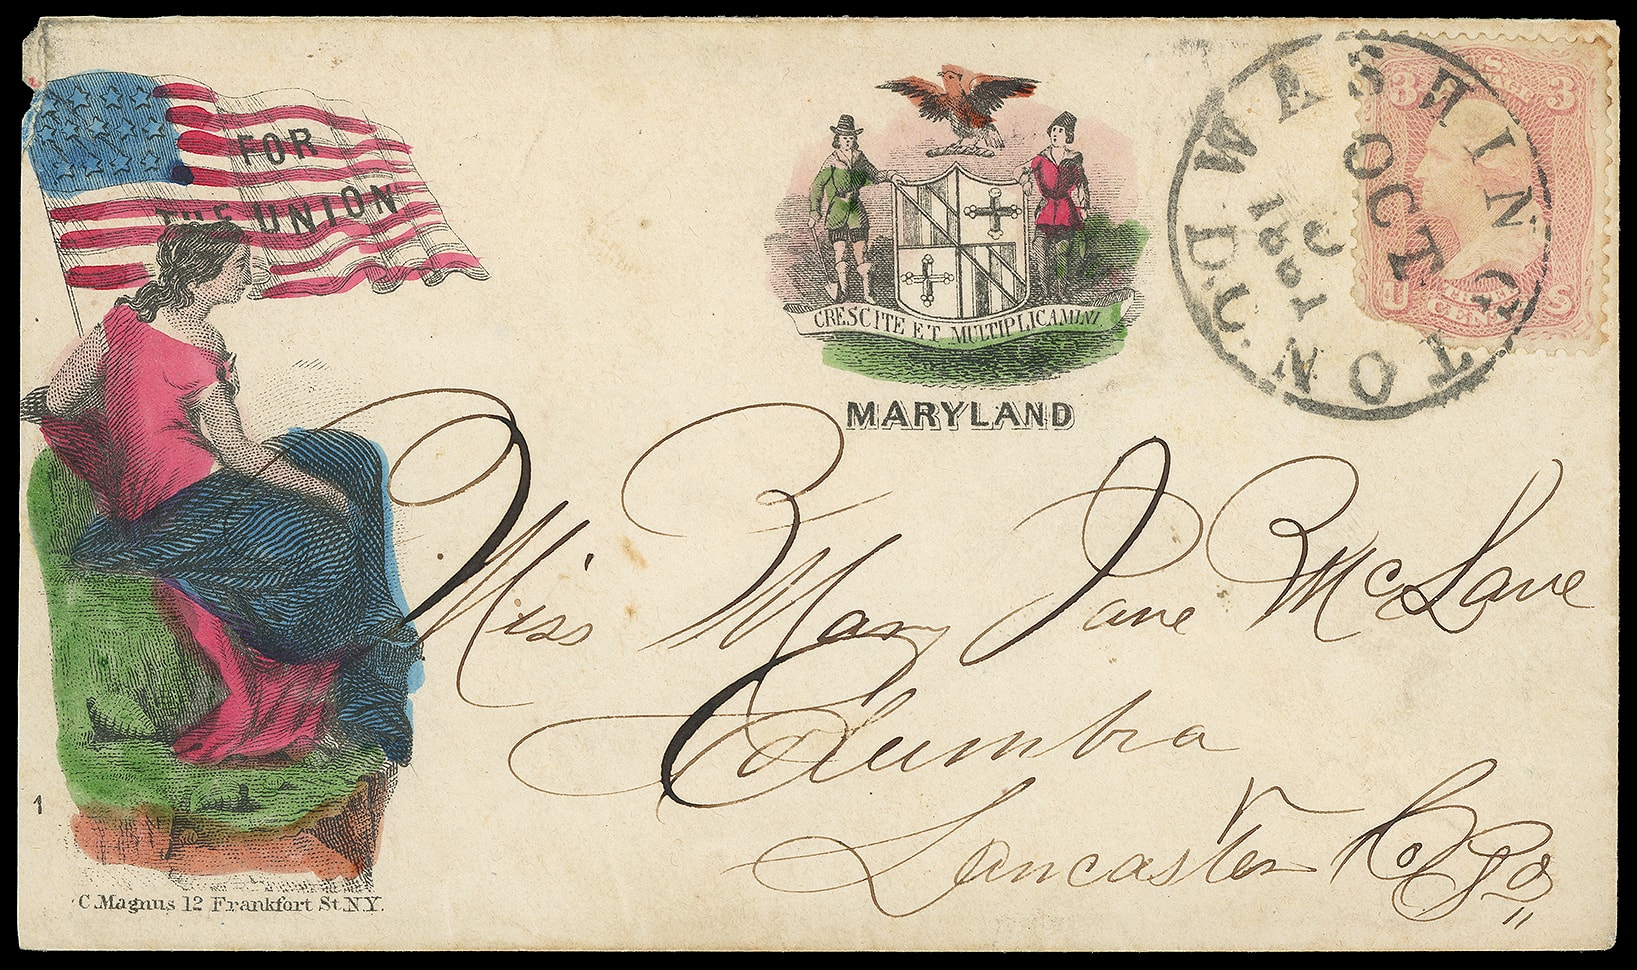 FOR
THE UNION
CRESCITE ET MULTIPLICAMINI
MARYLAND
WASHINGTON. D.
OCT
1861
3 3
U S
Miss Mary Jane McLane
Columbia
Lancaster Co Pa
1
C. Magnus 12 Frankfort St. N.Y.